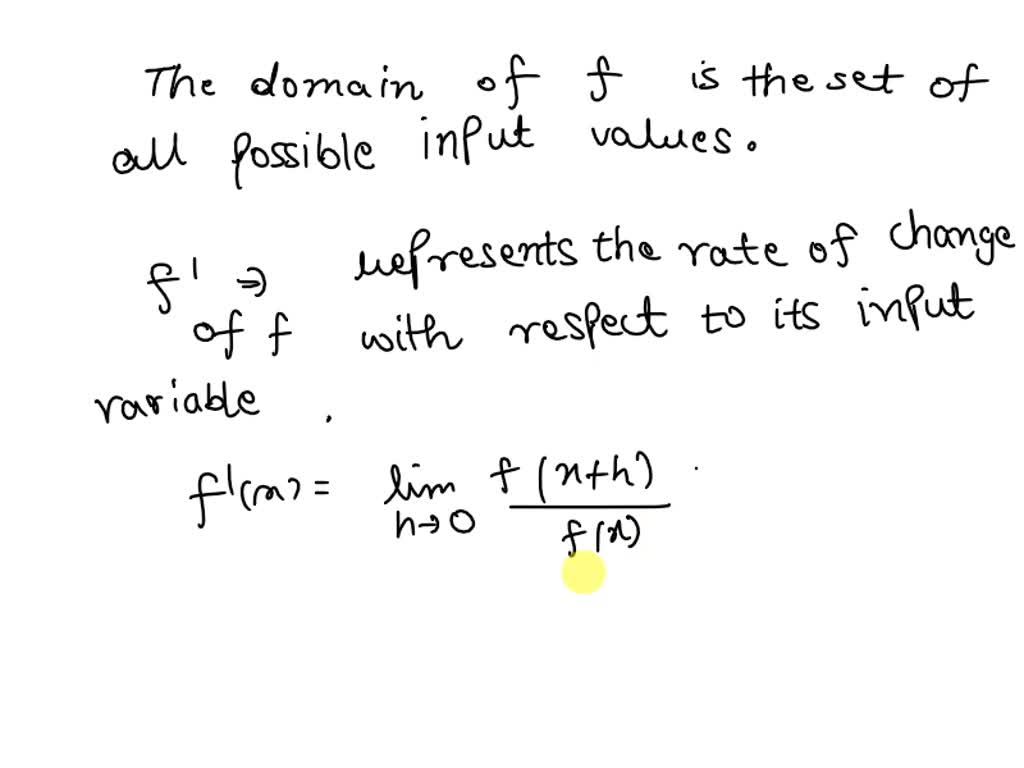 The domain of f is the set of
all possible input values.
f' ⇒ represents the rate of change
of f with respect to its input
variable .
f'(x) = lim h→0 f(x+h) / f(x)